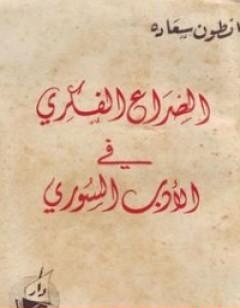 انطون سعاده
الصراع الفكري
في
الأدب السوري
دار